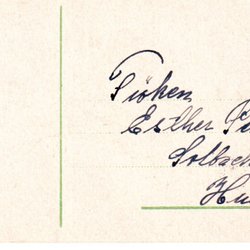 Fröken
Esther Pe
Solbac
Hu